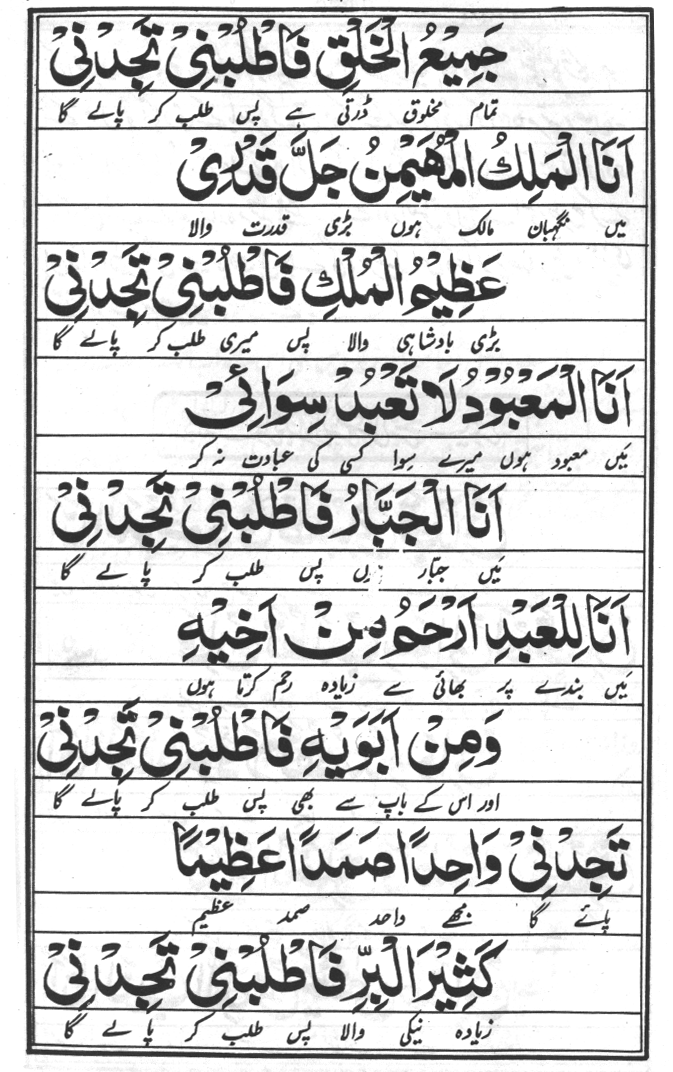 جَمِيْعُ الْخَلْقِ فَاطْلُبْنِيْ تَجِدْنِيْ
تمام مخلوق ڈرتی ہے پس طلب کر پالے گا
اَنَا الْمَلِكُ الْمُهَيْمِنُ جَلَّ قَدْرِيْ
میں نگہبان مالک ہوں بڑی قدرت والا
عَظِيْمُ الْمُلْكِ فَاطْلُبْنِيْ تَجِدْنِيْ
بڑی بادشاہی والا پس میری طلب کر پالے گا
اَنَا الْمَعْبُوْدُ لَا تَعْبُدْ سِوَائِیْ
میں معبود ہوں میرے سوا کسی کی عبادت نہ کر
اَنَا الْجَبَّارُ فَاطْلُبْنِيْ تَجِدْنِيْ
میں جبّار ہوں پس طلب کر پالے گا
اَنَا لِلْعَبْدِ اَرْحَمُ مِنْ اَخِيْهِ
میں بندے پر بھائی سے زیادہ رحم کرتا ہوں
وَمِنْ اَبَوَيْهِ فَاطْلُبْنِيْ تَجِدْنِيْ
اور اس کے باپ سے بھی پس طلب کر پالے گا
تَجِدْنِيْ وَاحِدًا صَمَدًا عَظِيْمًا
پائے گا مجھے واحد صمد عظیم
كَثِيْرَ الْبِرِّ فَاطْلُبْنِيْ تَجِدْنِيْ
زیادہ نیکی والا پس طلب کر پالے گا